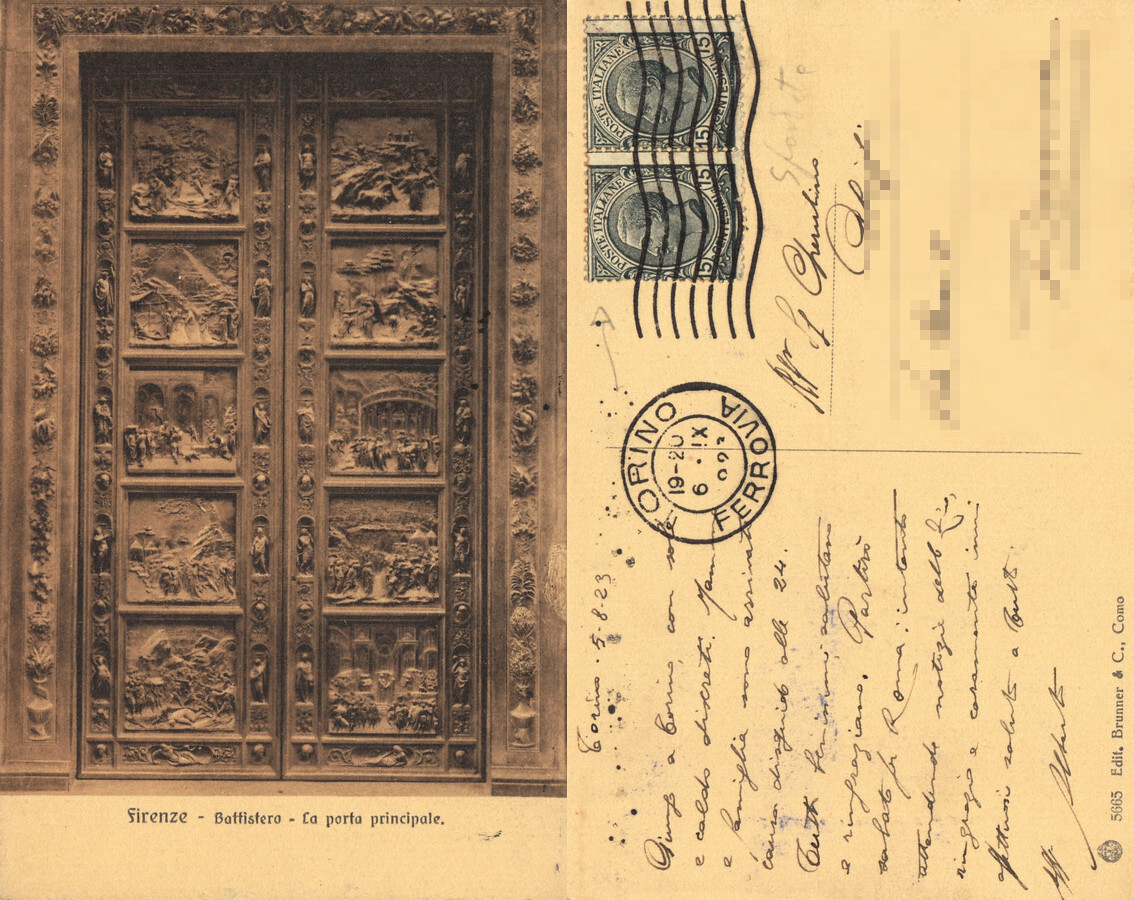 Firenze - Battistero - La porta principale.
POSTE ITALIANE
15 CENTESIMI 15
POSTE ITALIANE
15 CENTESIMI 15
TORINO FERROVIA
19-20
6 · IX
Torino. 5.8.23
Giungo a Torino, con sole
e caldo discreti.
e famiglia sono arrivati
causa disguido alle 24.
Tutti benissimo salutano
e ringraziano. Partirò
sabato per Roma: intanto
attendendo notizie dello Zio,
ringrazio e caramente invio
affettuosi saluti a tutti.
aff. Alberto
5665 Edit. Brunner & C., Como